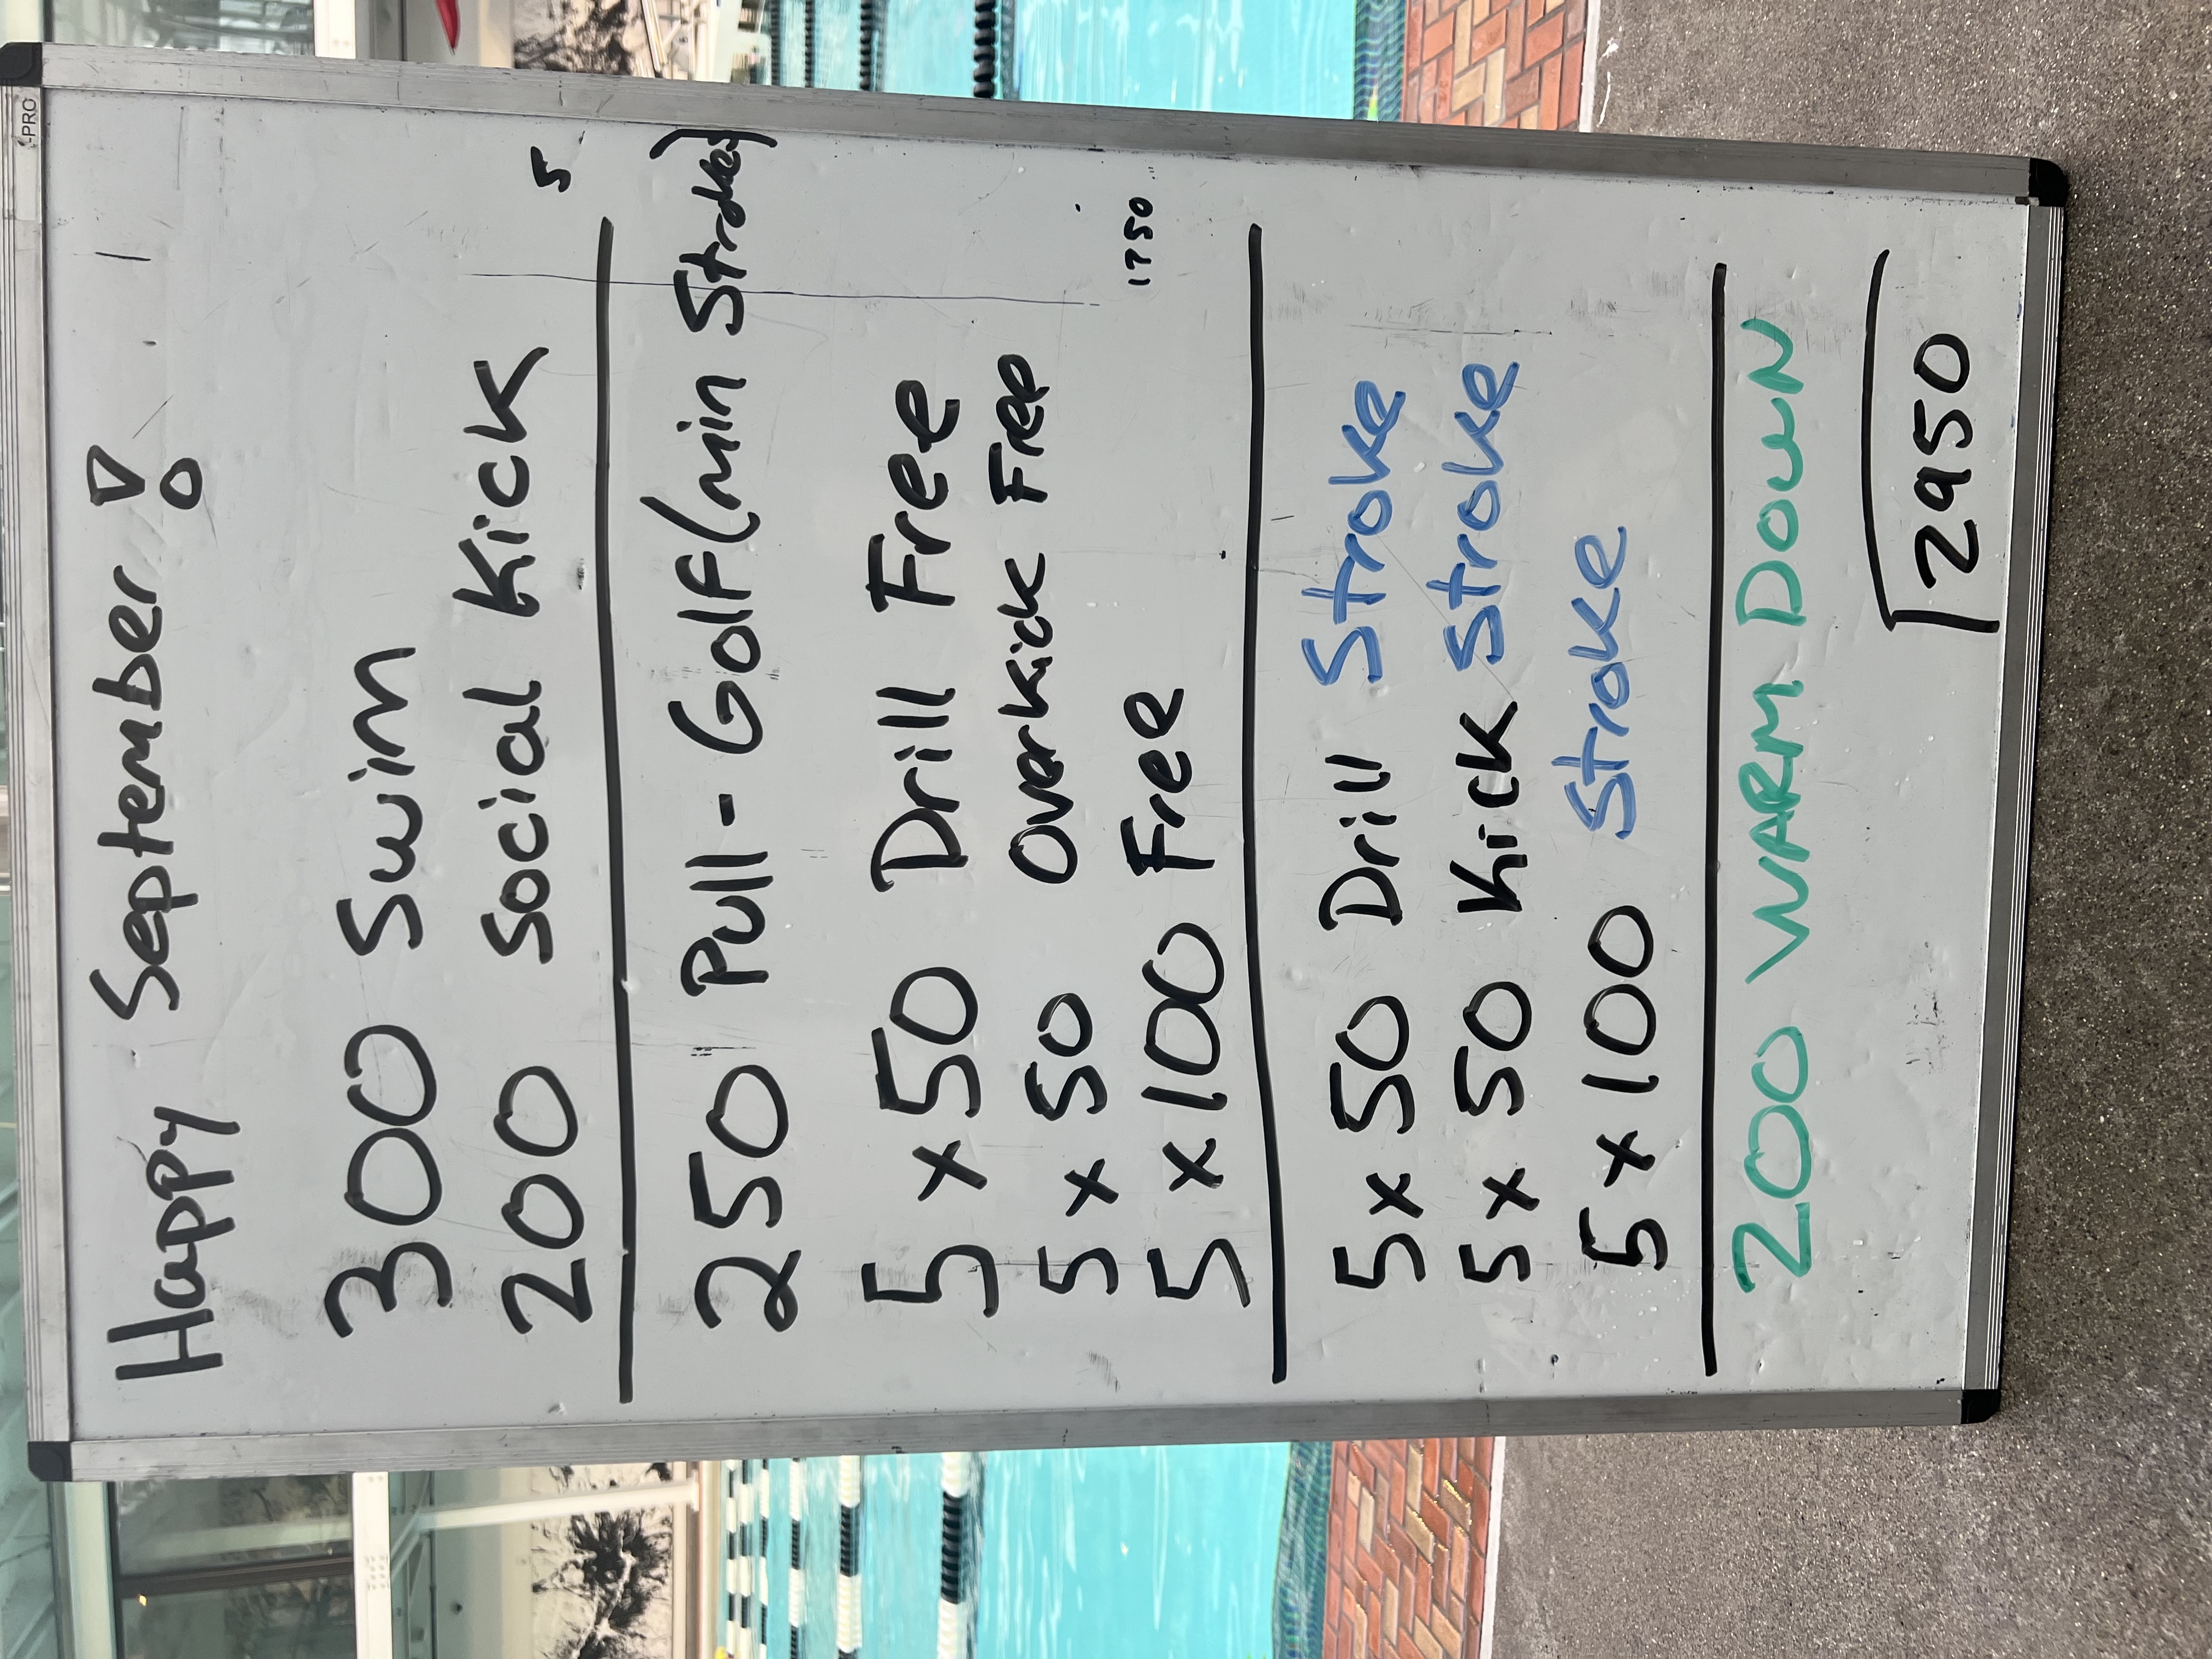 Happy September!
300 Swim
200 Social Kick
5
250 Pull - Golf (min Strokes)
5 x 50 Drill Free
5 x 50 Overkick Free
5 x 100 Free
1750
5 x 50 Drill Stroke
5 x 50 Kick Stroke
5 x 100 Stroke
200 WARM DOWN
2950